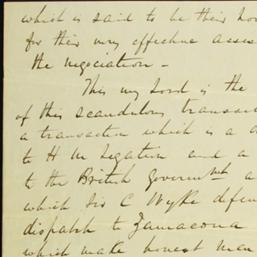 which is said to be their hou
for their very effective assis
the negociation —
This my Lord is the
of this scandalous transac
a transaction which is a d
to H M Legation and a
to the British Governmt a
which Sir C Wyke defen
dispatch to Zamacona
which make honest men